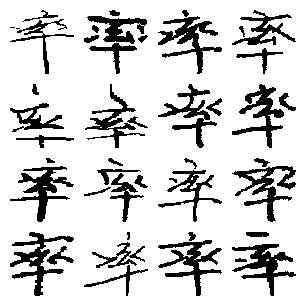 率率率率
率率率率
率率率率
率率率率